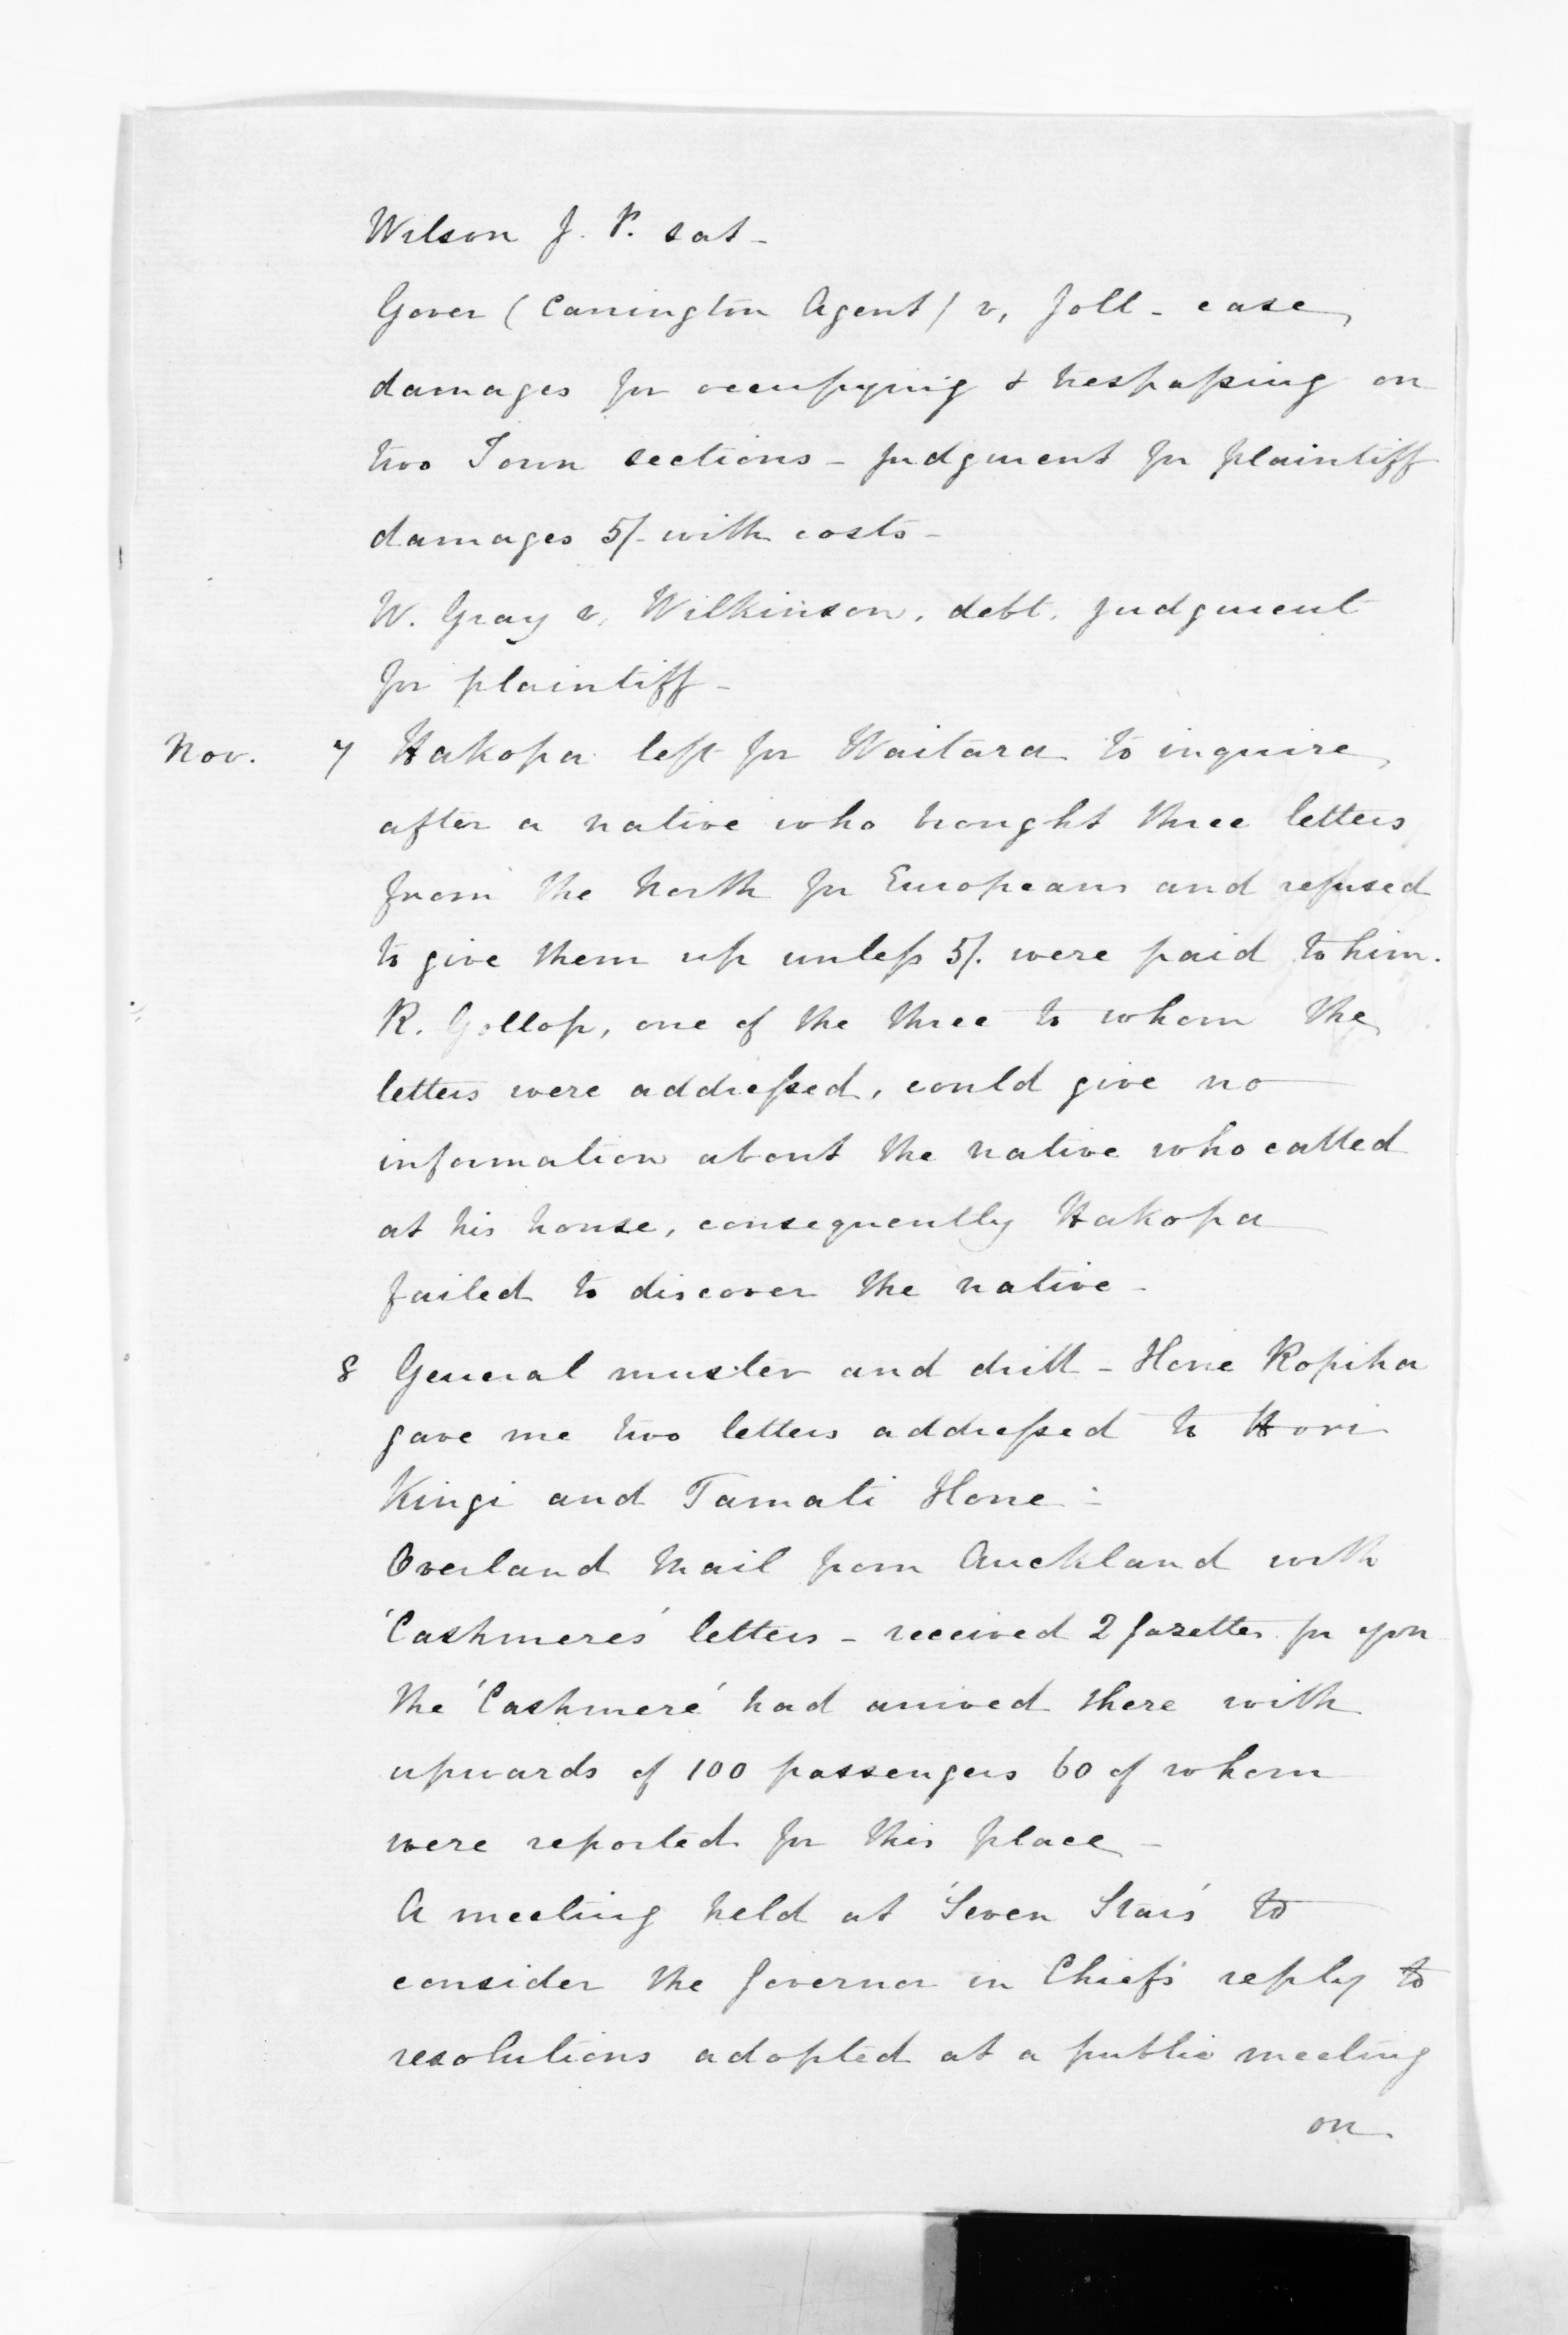 Wilson J. P. sat -
Gover (Carrington Agent) v, Joll - case,
damages for occupying & trespassing on
two Town sections - judgment for plaintiff
damages 5/- with costs -
W. Gray v, Wilkinson, debt, judgment
for plaintiff -
Nov. 7 Hakopa left for Waitara to inquire,
after a native who brought three letters
from the North for Europeans and refused
to give them up unless 5/. were paid to him.
R. Gollop, one of the three to whom the
letters were addressed, could give no
information about the native who called
at his house, consequently Hakopa
failed to discover the native -
8 General muster and drill - Hone Ropiha
gave me two letters addressed to Hori
Kingi and Tamati Hone -
Overland Mail from Auckland with
'Cashmeres' letters - received 2 Gazettes for you
the 'Cashmere' had arrived there with
upwards of 100 passengers 60 of whom
were reported for this place -
A meeting held at 'Seven Stars' to
consider the Governor in Chief's reply to
resolutions adopted at a public meeting
on